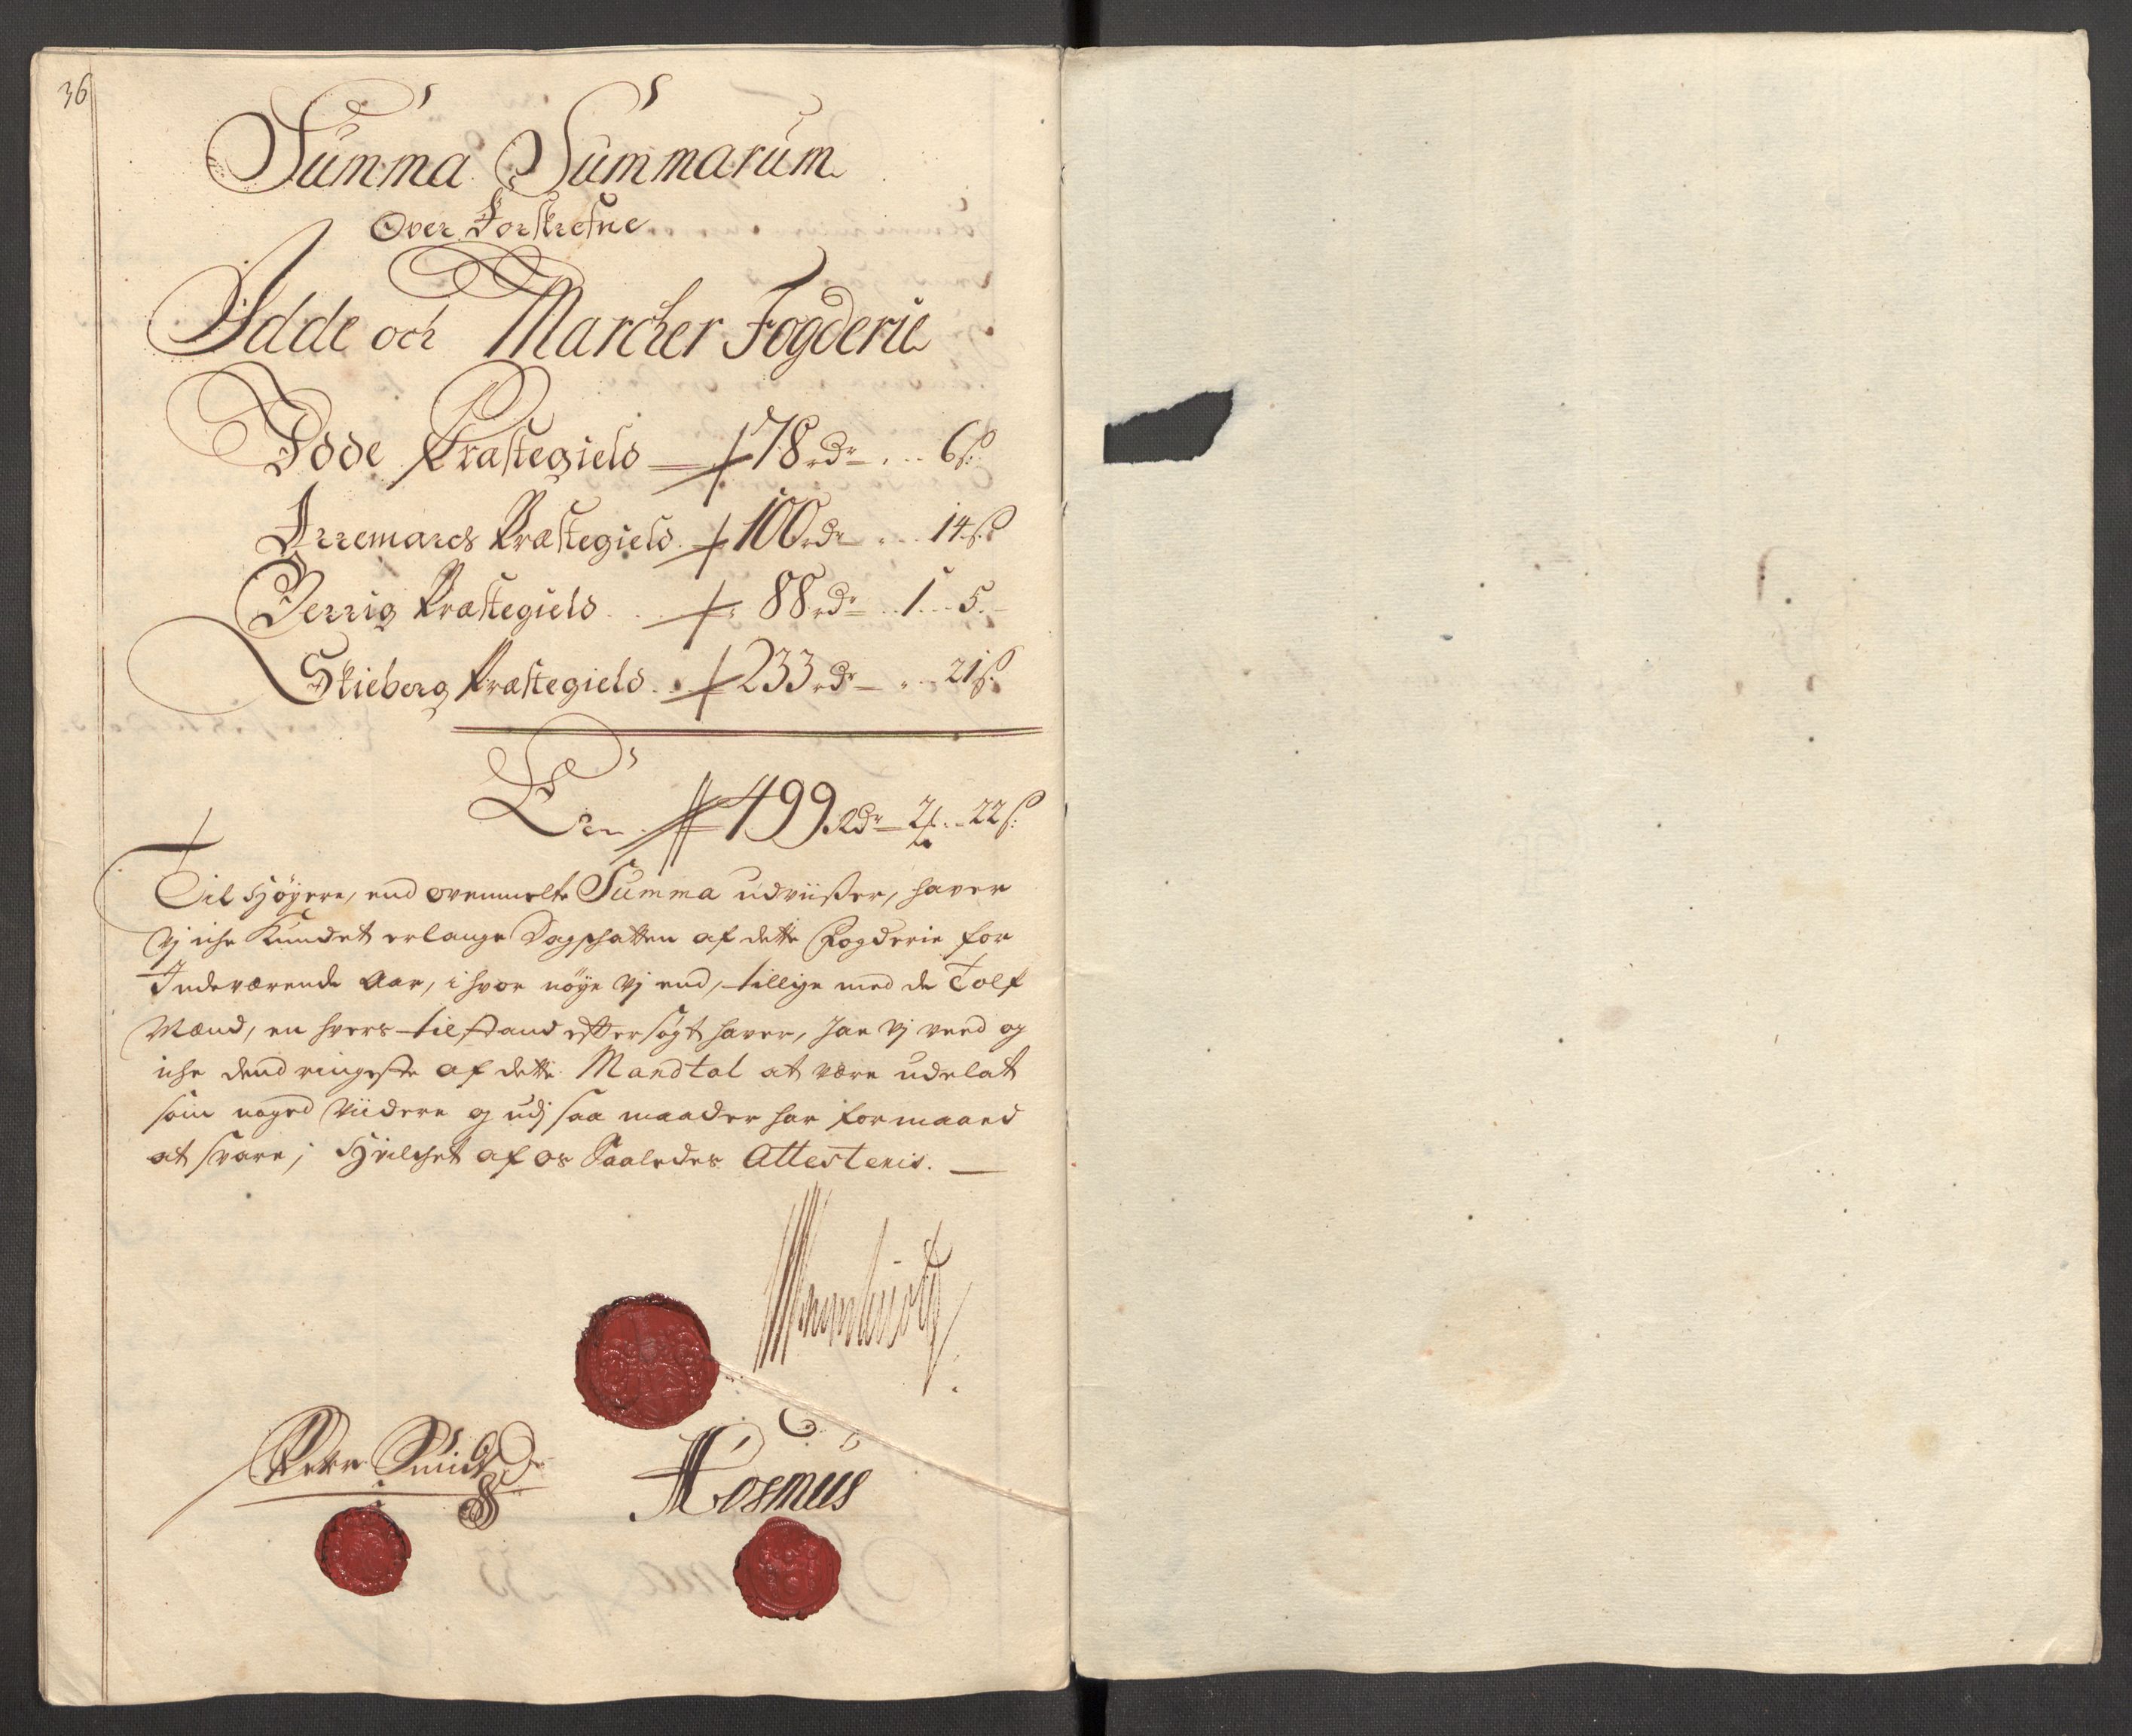 36
Summa Summarum
Over Forskrefne
Idde och Marcker Fogderie
Idde Præstegield 78 rdr . . . 6 s:
Arremarcks Præstegield . 100 rdr . . . 14 s:
Berrig Præstegield . . . 88 rdr . . 1 . . 5 . .
Skieberg Præstegield . . 233 rdr . . . 21 s:
Er 499 Rdr 2 . . 22 s:
Til Høyere, end ovenmelte Summa udviißer, haver
Vj iche Kundet erlange Dagschatten af dette Fogderie for
Indeværende Aar, i hvor nøye Vj end, tillige med de Tolf
Mænd, en hvers tilstand eftersøgt haver, saa Vj veed og
iche dend ringeste af dette Mandtal at være udelat
som noged Viidere og udj saa maader har formaaed
at svare; Hvilchet af os Saaledes Attesteris.
Peder Smidt